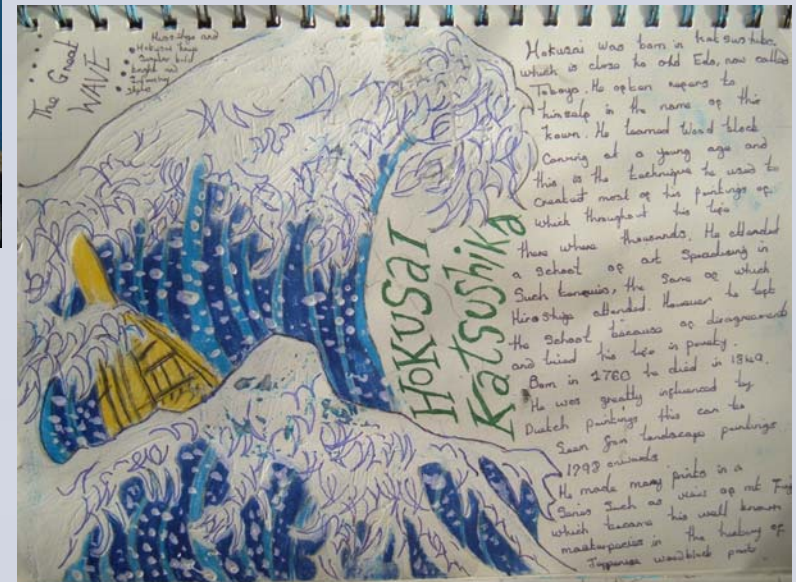 The Great
WAVE
Hiroshige and
Hokusai have
Similar bold
bright and
styles
HOKUSAI
Katsushika
Hokusai was born in Katsushika
which is close to old Edo, now called
Tokoyo. He opten repers to
himself in the name op this
town. He learned Wood block
Carving at a young age and
this is the technique he used to
Createst most op his paintings op
which throughout his lipe
there where thousands. He attended
a school op art Specialising in
Such the Same op which
Hiroshige attended. However he lept
the School because op disagreements
and lived his lipe in poverty.
Born in 1760 he died in 1849.
He was greatly inpluenced by
Dutch paintings this can be
Seen from landscape paintings
1798 onwards
He made many prints in a
Series Such as views op mt Fuji
which became his well known
masterpieces in the history op
Jappanese woodblock print.